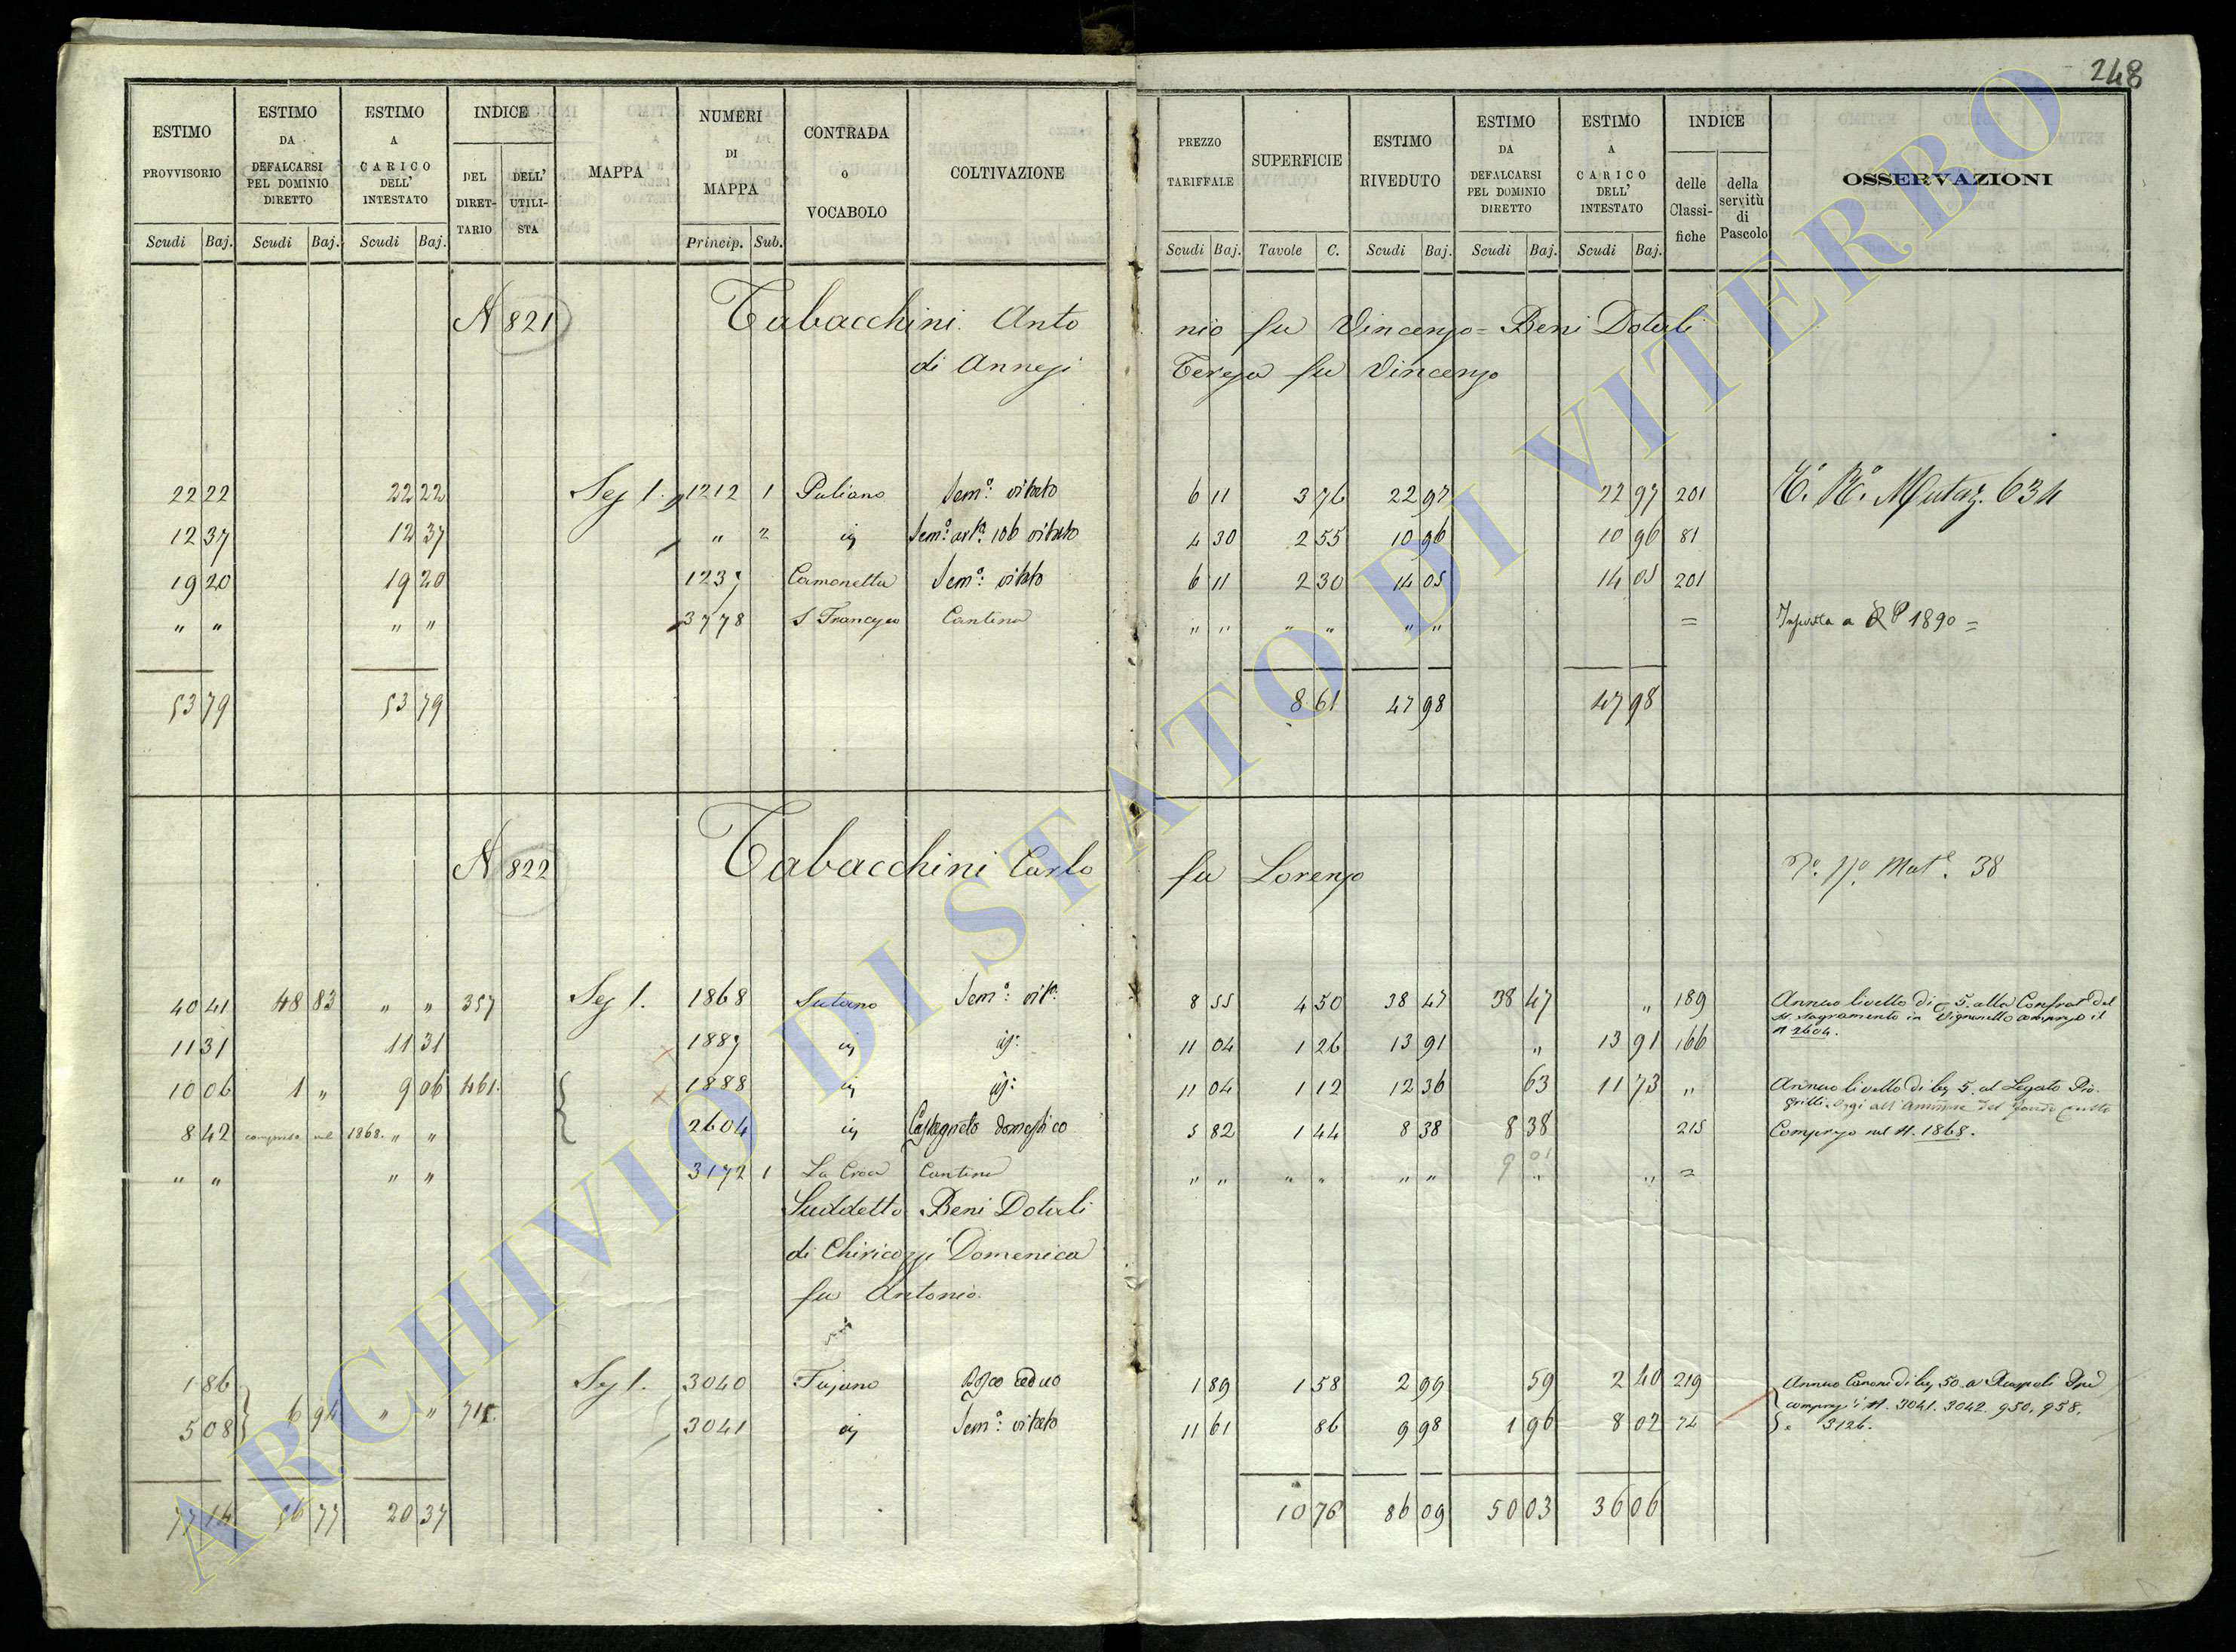 248
ESTIMO PROVVISORIO | ESTIMO DA DEFALCARSI PEL DOMINIO DIRETTO | ESTIMO A CARICO DELL' INTESTATO | INDICE | MAPPA | NUMERI DI MAPPA | CONTRADA o VOCABOLO | COLTIVAZIONE | PREZZO TARIFFALE | SUPERFICIE | ESTIMO RIVEDUTO | ESTIMO DA DEFALCARSI PEL DOMINIO DIRETTO | ESTIMO A CARICO DELL' INTESTATO | INDICE | OSSERVAZIONI
DEL DIRET-TARIO | DELL' UTILI-STA | delle Classi-fiche | della servitù di Pascolo
Scudi Baj. | Scudi Baj. | Scudi Baj. | Princip. Sub. | Scudi Baj. | Tavole C. | Scudi Baj. | Scudi Baj. | Scudi Baj.
N 821 Tabacchini Antonio fu Vincenzo = Beni Dotali
di Annesi Teresa fu Vincenzo
22 22 | 22 22 | Sez 1. | 1212 1 | Puliano | Sem.º vitato | 6 11 | 3 76 | 22 97 | 22 97 | 201 | Mutaz. 634
12 37 | 12 37 | " 2 | ij | Sem.º vitato | 4 30 | 2 55 | 10 96 | 10 96 | 81
19 20 | 19 20 | 1237 | Camonetta | Sem.º vitato | 6 11 | 2 30 | 14 05 | 14 05 | 201
" " | " " | 3778 | S Francesco | Cantina | " " | " " | " " | = | a RP 1890 =
53 79 | 53 79 | 8 61 | 47 98 | 47 98
N 822 Tabacchini Carlo fu Lorenzo | Mut.e 38
40 41 | 48 83 | " " | 357 | Sez 1. | 1868 | Sutano | Sem.º vit.º | 8 55 | 4 50 | 38 47 | 38 47 | " | 189 | Annuo livello di 5. alla Confrat del
SS. Sagramento in Vignanello compreso il
N 2604.
11 31 | 11 31 | 1887 | ij | ij: | 11 04 | 1 26 | 13 91 | " | 13 91 | 166
10 06 | 1 " | 9 06 | 461. | 1888 | ij | ij: | 11 04 | 1 12 | 12 36 | 63 | 11 73 | " | Annuo livello di 5. al Legato Pio
8 42 | compreso nel 1868. " " | 2604 | ij | Castagneto domestico | 5 82 | 1 44 | 8 38 | 8 38 | 215 | Compreso nel N. 1868.
" " | " " | 3172 1 | La Croce | Cantina | " " | " " | " " | 9 01 | " | =
Suddetto Beni Dotali
di Chiricozzi Domenica
fu Antonio
1 86 | Sez 1. | 3040 | Fajano | Bosco Ceduo | 1 89 | 1 58 | 2 99 | 59 | 2 40 | 219 | Annuo Canone di 50 a Ruspoli
5 08 | 6 94 | " " | 711. | 3041 | ij | Sem.º vitato | 11 61 | 86 | 9 98 | 1 96 | 8 02 | 72 | compresi i N. 3041. 3042. 950. 958.
e 3126.
77 14 | 56 77 | 20 37 | 10 76 | 86 09 | 50 03 | 36 06
ARCHIVIO DI STATO DI VITERBO